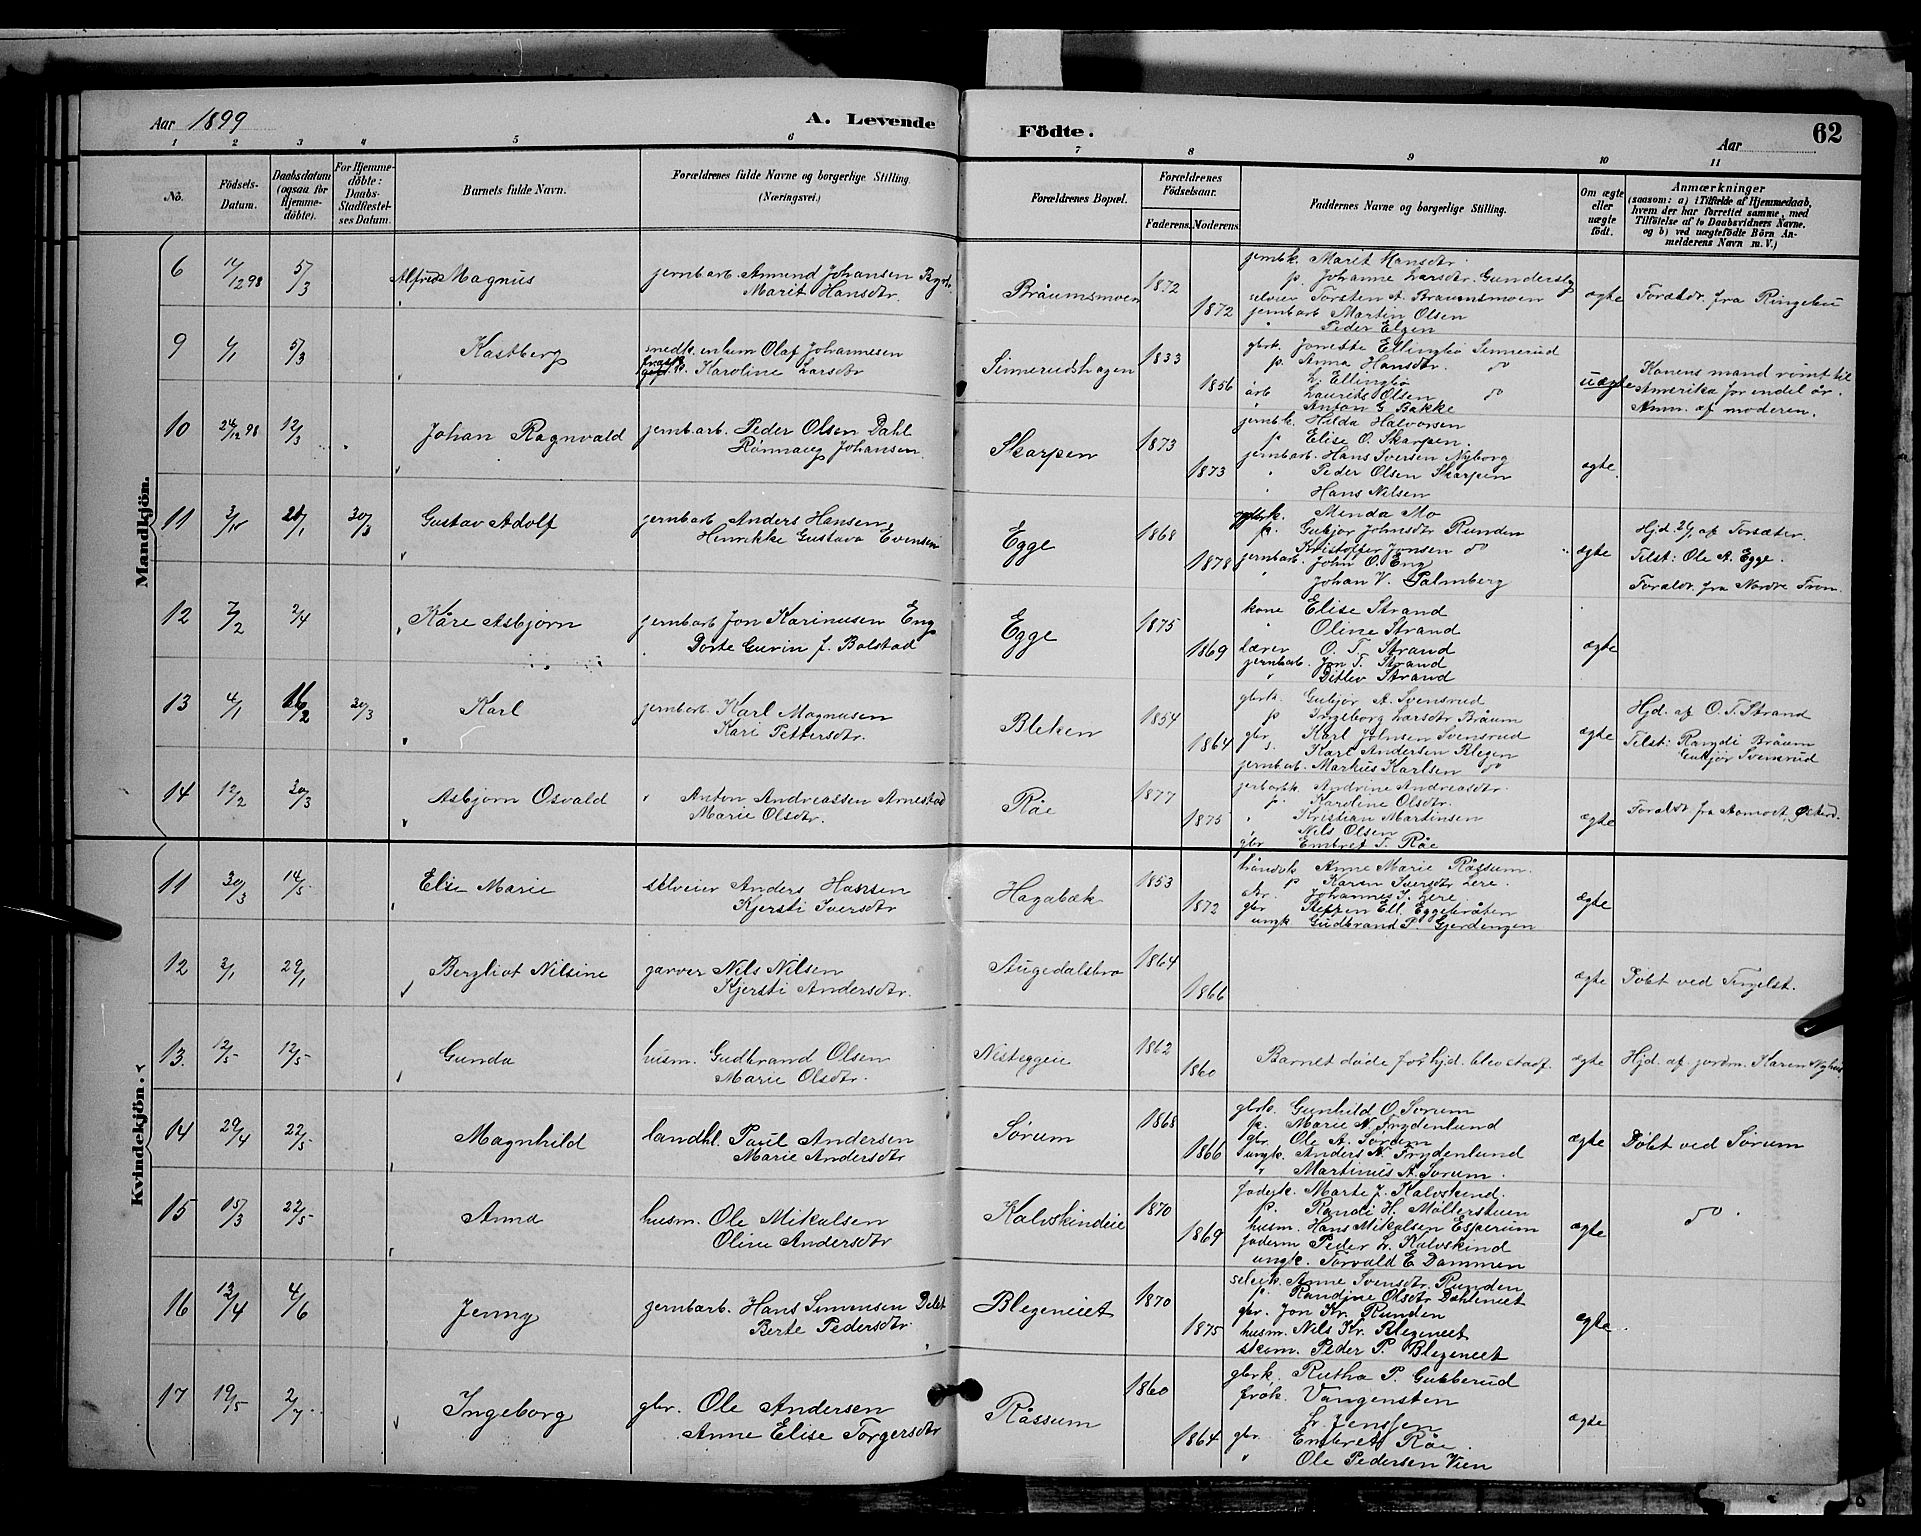 Aar 1899 A. Levende Födte. Aar 62
1 2 3 4 5 6 7 8 9 10 11
No. Födsels-Datum. Daabsdatum (ogsaa for Hjemmedöbte). For Hjemmedöbte: Daabs-Stadfestelses Datum. Barnets fulde Navn. Forældrenes fulde Navne og borgerlige Stilling (Næringsvei.) Forældrenes Bopæl. Forældrenes Födselsaar. Faderens. Moderens. Faddernes Navne og borgerlige Stilling. Om ægte eller uægte födt. Anmærkninger (saasom: a) i Tilfælde af Hjemmedaab, hvem der har forrettet samme, med Tilföielse af to Daabsvidners Navne. og b) ved uægtefödte Börn Anmelderens Navn m. V.)
Mandkjön.
6 /12 98 5/3 Alfred Magnus jernbarb. Amund Johansen
Marit Hansdtr. Bråumsmoen 1872 1872 jernbk. Marit Hansdtr.
p. Johanne Larsdtr.
selveier Torsten A. Bråumsmoen
jernbarb Marten Olsen
" Peder Elgen ægte Forældr. fra Ringebu
9 4/1 5/3 Kastberg snedk. enkem Olaf Johannesen
Karoline Larsdtr Sinnerudshagen 1833 1856 gbrk. Jonette Ellingbø Sinnerud
p. Anna Hansdtr. do
L. Ellingbø
arb Laurits Olsen do
Anton G Bakke uægte Konens mand rømt til
Amerika for endel år.
Anm. af moderen.
10 24/12 98 12/3 Johan Ragnvald jernbarb. Peder Olsen Dahl
Rønnaug Johansen Skarpen 1873 1873 jernbk. Hilda Halvorsen
p Elise O. Skarpen.
jernbarb. Hans Iversen Nyborg
" Peder Olsen Skarpen
" Hans Nilsen ægte
11 /1 30/3 Gustav Adolf jernbarb Anders Hansen
Henrikke Gustava Evensen Egge 1868 1878 Menda Mo
p. Gubjør Johnsdtr Runden
Kristoffer Jonsen do
jernbarb. John O. Eng
" Johan V. Palmberg ægte Hjd. af Forsæter.
Tilst: Ole A. Egge.
Forældr. fra Nordre Fron.
12 7/2 2/4 Kåre Asbjørn jernbarb Jon Karinusen Eng
Dorte Gurin J. Bolstad Egge 1875 1869 kone Elise Strand
" Oline Strand
lærer O. T. Strand
jernbarb. Jon T. Strand
" Ditlev Strand ægte
13 4/1 /2 30/3 Karl jernbarb. Karl Magnusen
Kari Pettersdtr. Bleken 1854 1864 gbrk. Gubjør A. Svensrud
p Ingeborg Larsdtr Bråum
gbr. Karl Johnsen Svensrud
s. Karl Andersen Blegen
jernbarb. Markus Karlsen do ægte Hjd. af O. T. Strand
Tilst: Randi Bråum
Gubjør Svensrud
14 12/2 30/3 Asbjørn Osvald " Anton Andreassen Arnestad
Marie Olsdtr. Råe 1877 1875 jerbarbk. Andrine Andreasdtr.
p. Karoline Olsdtr.
" Kristian Martinsen
" Nils Olsen
gbr Embret T. Råe ægte Forældr. fra Aamodt, Østerd.
Kvindekjön.
11 30/3 14/5 Elise Marie selveier Anders Hansen
Kjersti Iversdtr Hagabæk 1853 1872 Anne Marie Råssum.
p Karen Iversdtr Lere.
Johannes I. Lere
gbr Steffen Ell. Eggebråten
ungk Gudbrand P. Gjerdengen ægte
12 3/1 29/1 Bergliot Nilsine garver Nils Nilsen
Kjersti Andersdtr. Augedalsbro 1864 1866 ægte Døbt ved Tingelst.
13. 12/5 12/5 Gunda husm. Gudbrand Olsen
Marie Olsdtr. Nisteggeie 1862 1860 Barnet døde før hjd. blev stadf. ægte Hjd. af jordm. Karen Nyhus
14 29/4 22/5 Magnhild landhl. Paul Andersen
Marie Andersdtr Sørum 1868 1866 gbrk. Gunhild O. Sørum
p. Marie N. Frydenlund
gbr. Ole A. Sørum
ungk. Anders N. Frydenlund
" Martinus A. Sørum. ægte Døbt ved Sørum
15 15/3 22/5 Anna husm. Ole Mikalsen
Oline Andersdtr Kalvskindeie 1870 1869 føderk. Marte J. Kalvskind.
p. Randi H. Møllerstuen
husm. Hans Mikalsen Esperum
føderm Peder L. Kalvskind
ungk. Torvald E Dammen ægte do
16 12/4 4/6 Jenny jernbarb. Hans Simensen
Berte Pedersdtr. Blegeneiet 1870 1875 selvek. Anne Svensdtr. Runden
p. Randine Olsdtr Dæhleneiet
gbr. Jon Kr. Runden
husm. Nils Kr. Blegeneiet
skom. Peder P. Blegeneiet ægte
17 19/5 2/7 Ingeborg gbr. Ole Andersen
Anne Elise Torgersdtr Råssum 1860 1864 gbrk. Rutha P. Gubberud
frøk. Vangensten
L. Jenssen
gbr Embret Råe
" Ole Pedersen Vien ægte